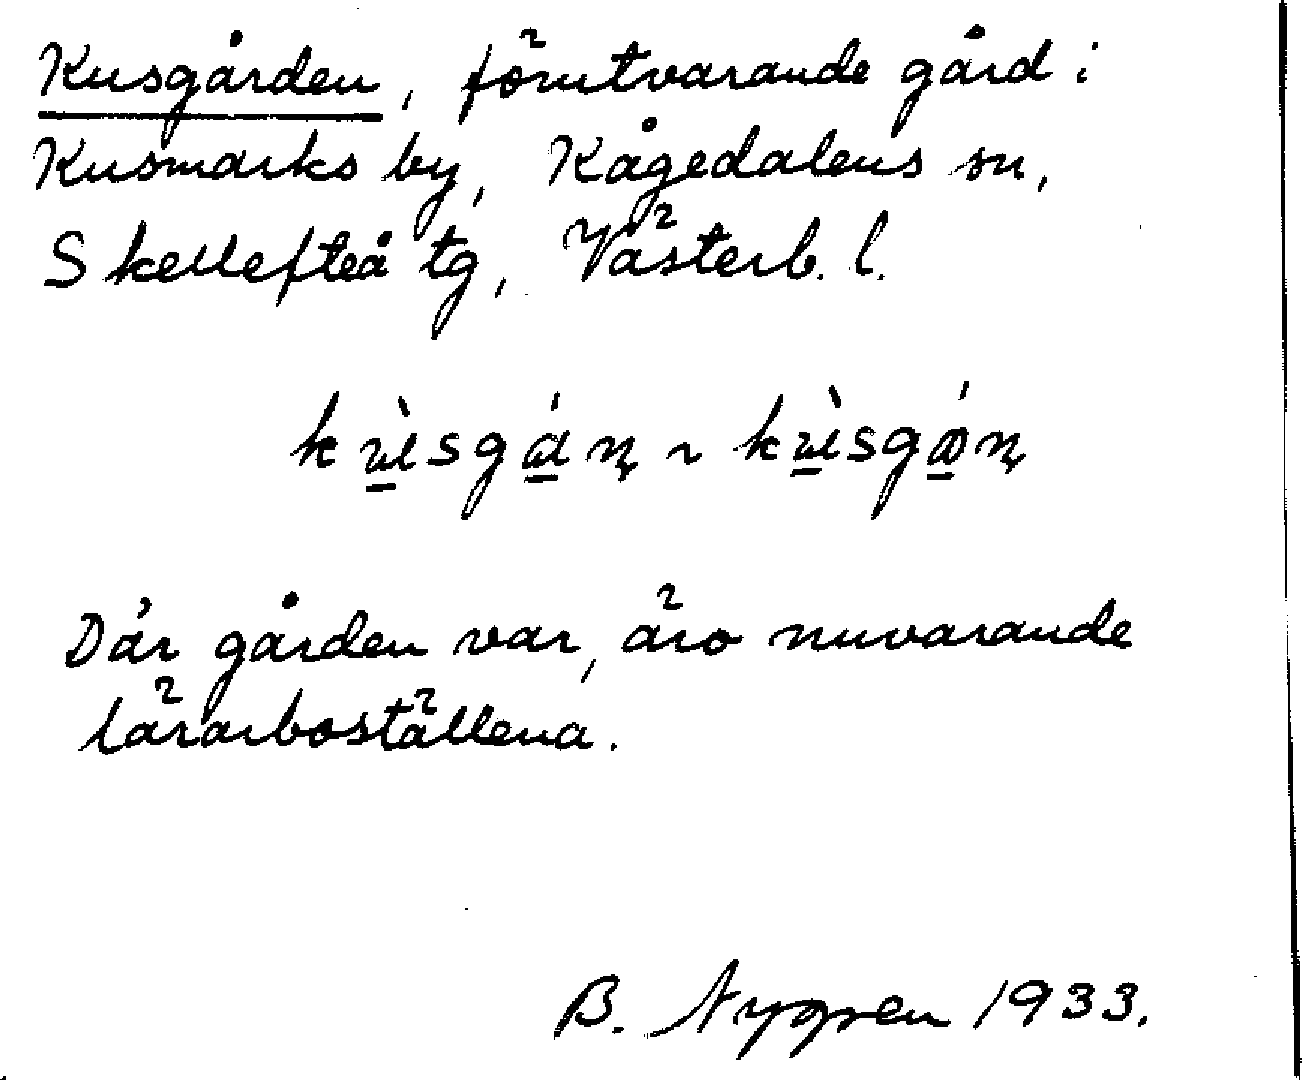 Kusgården, förutvarande gård i
Kusmarks by, Kågedalens sn,
Skellefteå tg, Västerb. l.
Där gården var, äro nuvarande
lärarboställena.
B. Nygren 1933.